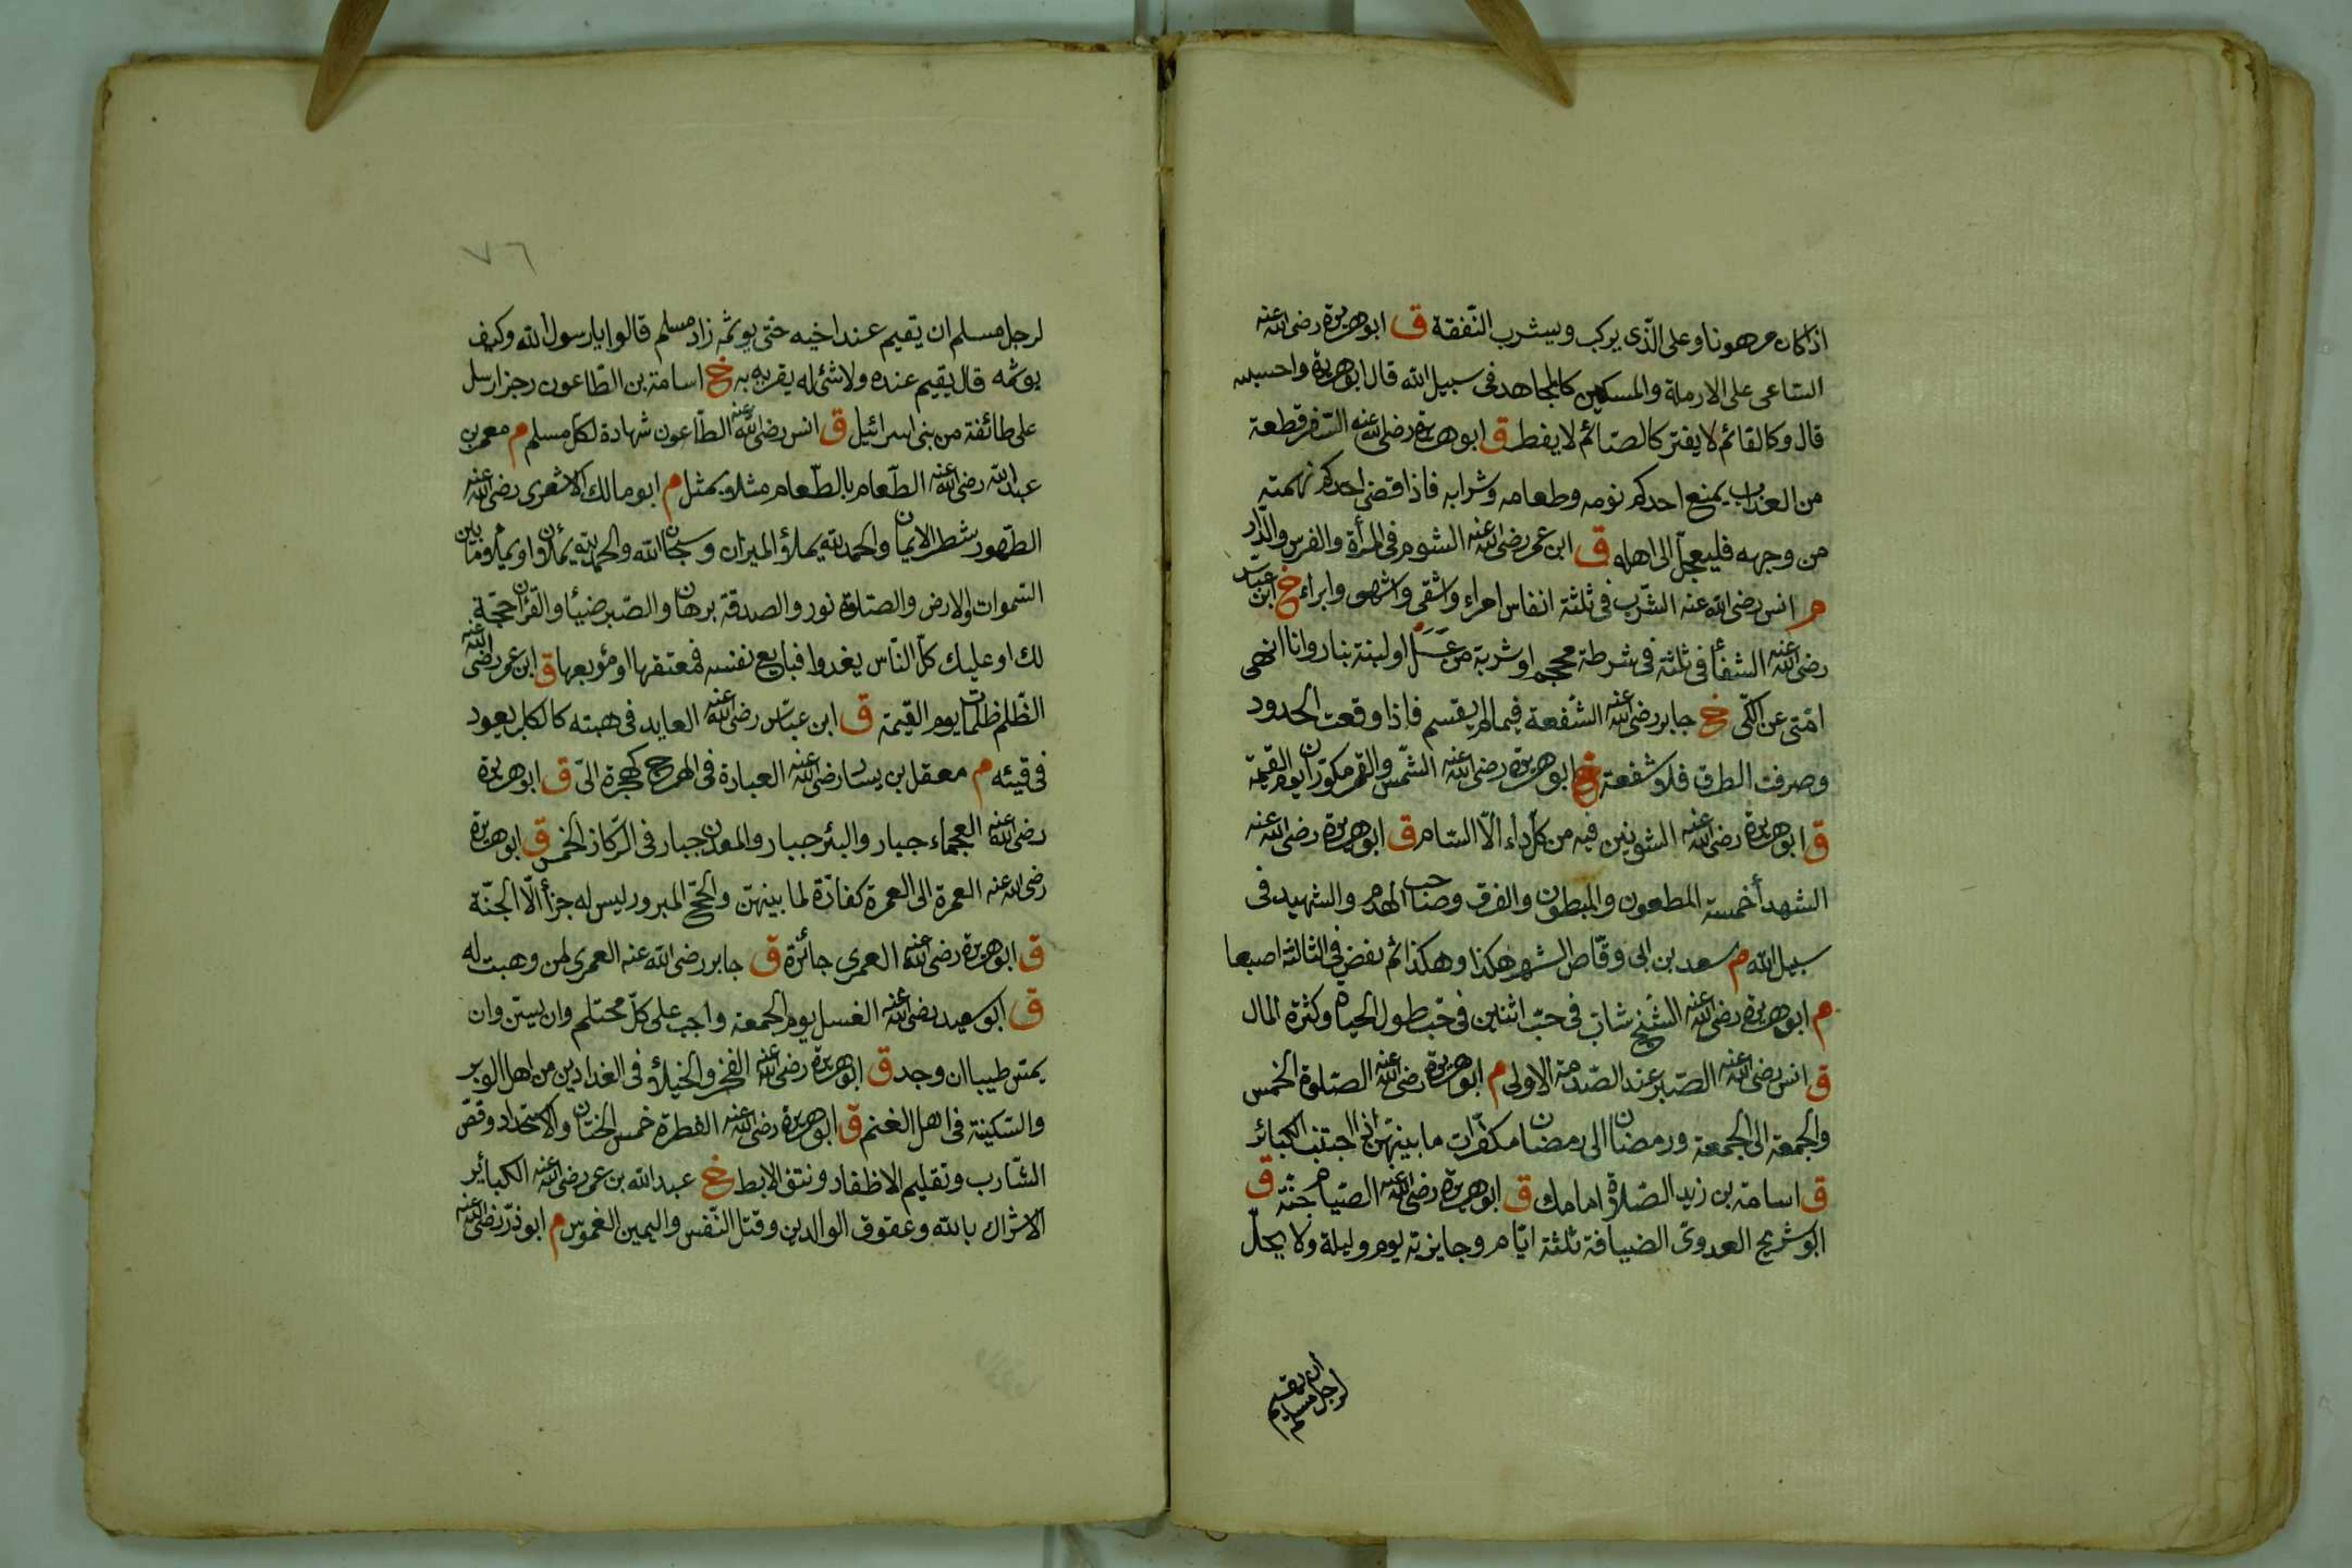 اذا كان مرهونا وعلى الذى يركب ويشرب النفقة ق ابوهريرة رضى الله عنه
الساعى على الارملة والمسكين كالمجاهد فى سبيل الله قال ابوهريرة واحسبه
قال وكالقائم لا يفتر كالصائم لا يفطر ق ابوهريرة رضى الله عنه السفر قطعة
من العذاب يمنع احدكم نومه وطعامه وشرابه فاذا قضى احدكم نهمته
من وجهه فليعجل الى اهله ق ابن عمر رضى الله عنه الشوم فى المرأة والفرس والدار
م انس رضى الله عنه الشرب فى ثلثة انفاس امراء واشفى واشهى وابراء خ ابن عباس
رضى الله عنه الشفأ فى ثلثة فى شرطة محجم او شربة من عسل او لبنة بنار وانا انهى
امتى عن الكى خ جابر رضى الله عنه الشفعة فيما لم يقسم فاذا وقعت الحدود
وصرفت الطرق فلا شفعة خ ابوهريرة رضى الله عنه الشمس والقمر مكوران يوم القيمة
ق ابوهريرة رضى الله عنه الشونيز فيه من كل داء الا السام ق ابوهريرة رضى الله عنه
الشهدأ خمسة المطعون والمبطون والغرق وصاحب الهدم والشهيد فى
سبيل الله م سعد بن ابى وقاص الشهر هكذا وهكذا ثم نقض فى الثالثة اصبعا
م ابوهريرة رضى الله عنه الشيخ شاب فى حب اثنين فى حب طول الحياة وكثرة المال
ق انس رضى الله عنه الصبر عند الصدمة الاولى م ابوهريرة رضى الله عنه الصلوة الخمس
والجمعة الى الجمعة ورمضان الى رمضان مكفرات ما بينهن اذا اجتنب الكبائر
ق اسامة بن زيد الصلاة امامك ق ابوهريرة رضى الله عنه الصيام جنة ق
ابو شريح العدوى الضيافة ثلثة ايام وجايزته يوم وليلة ولا يحل
لرجل مسلم
ان يقيم
٧٦
لرجل مسلم ان يقيم عند اخيه حتى يوثمه زاد مسلم قالوا يا رسول الله وكيف
يوثمه قال يقيم عنده ولا شئ له يقريه به خ اسامة بن الطاعون رجز ارسل
على طائفة من بنى اسرائيل ق انس رضى الله عنه الطاعون شهادة لكل مسلم م معمر بن
عبد الله رضى الله عنه الطعام بالطعام مثلا بمثل م ابو مالك الاشعرى رضى الله عنه
الطهور شطر الايمان والحمد لله يملأ الميزان وسبحان الله والحمد لله يملأن او يملأ ما بين
السموات والارض والصلاة نور والصدقة برهان والصبر ضيأ والقرأن حجة
لك او عليك كل الناس يغدوا فبايع نفسه فمعتقها او موبقها ق ابن عمر رضى الله عنه
الظلم ظلمات يوم القيمة ق ابن عباس رضى الله عنه العايد فى هبته كالكلب يعود
فى قيئه م معقل بن يسار رضى الله عنه العبادة فى الهرج كهجرة الى ق ابوهريرة
رضى الله عنه العجماء جبار والبئر جبار والمعدن جبار فى الركاز الخمس ق ابوهريرة
رضى الله عنه العمرة الى العمرة كفارة لما بينهن والحج المبرور ليس له جزأ الا الجنة
ق ابوهريرة رضى الله عنه العمرى جائزة ق جابر رضى الله عنه العمرى لمن وهبت له
ق ابو سعيد رضى الله عنه الغسل يوم الجمعة واجب على كل محتلم وان يستن وان
يمس طيبا ان وجد ق ابوهريرة رضى الله عنه الفخر والخيلأ فى الفدادين من اهل الوبر
والسكينة فى اهل الغنم ق ابوهريرة رضى الله عنه الفطرة خمس الختان والاستحداد وقص
الشارب وتقليم الاظفار ونتف الابط خ عبد الله بن عمر رضى الله عنه الكبائر
الاشراك بالله وعقوق الوالدين وقتل النفس واليمين الغموس م ابوذر رضى الله عنه